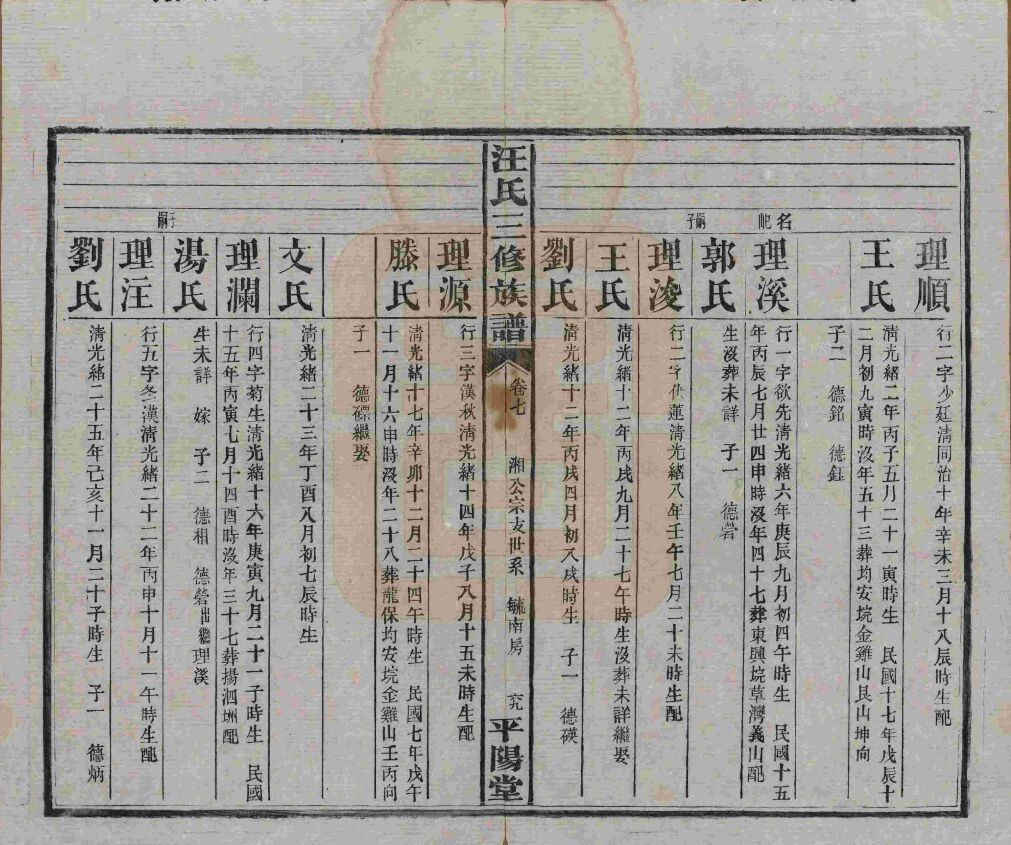 理順
行二字少廷清同治十年辛未三月十八辰時生配
王氏
清光緒二年丙子五月二十一寅時生　民國十七年戊辰十
二月初九寅時沒年五十三葬均安垸金雞山艮山坤向
子二　德銘　德鈺
名屺
理溪
行一字欲先清光緒六年庚辰九月初四午時生　民國十五
年丙辰七月廿四申時沒年四十七葬東興垸草灣義山配
郭氏
生沒葬未詳　子一　德礬
嗣子
理浚
行二字伏蓮清光緒八年壬午七月二十未時生配
王氏
清光緒十二年丙戌九月二十七午時生沒葬未詳繼娶
劉氏
清光緒十二年丙戌四月初八戌時生　子一　德磺
汪氏三修族譜
卷七
湘公宗支世系　毓南房
平陽堂
理源
行三字漢秋清光緒十四年戊子八月十五未時生配
滕氏
清光緒十七年辛卯十二月二十四午時生　民國七年戊午
十一月十六申時沒年二十八葬龍保均安垸金雞山壬丙向
子一　德磦繼娶
文氏
清光緒二十三年丁酉八月初七辰時生
理瀾
行四字菊生清光緒十六年庚寅九月二十一子時生　民國
十五年丙寅七月十四酉時沒年三十七葬揚泗洲配
湯氏
生未詳　嫁　子二　德相　德礬出繼理溪
子嗣
理汪
行五字冬漢清光緒二十二年丙申十月十一午時生配
劉氏
清光緒二十五年己亥十一月二十子時生　子一　德炳